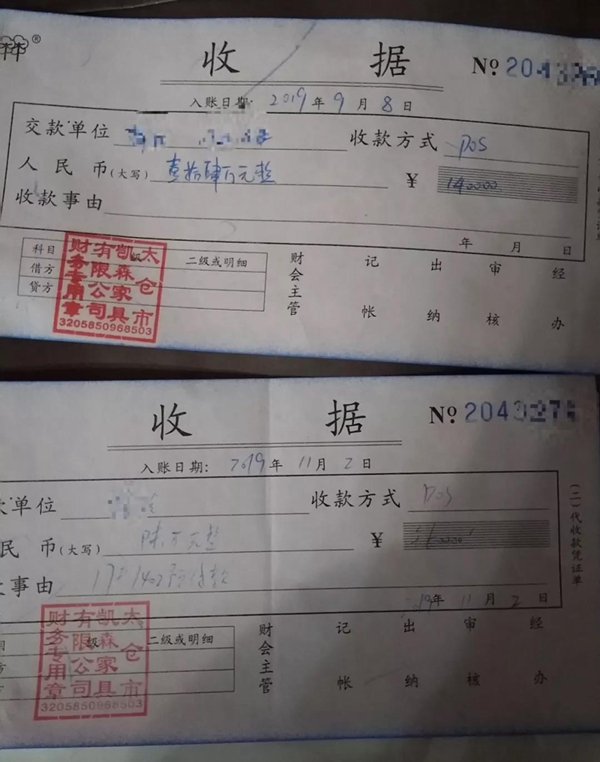 收 据 Nº 2043
入账日期: 2019 年 9 月 8 日
交款单位 收款方式 POS
人民币(大写) 壹拾肆万元整 ¥ 140000
收款事由
年 月 日
科目 级 二级或明细
借方
贷方
财会主管 记帐 出纳 审核 经办
太仓市凯森家具有限公司财务专用章
3205850968503
收 据 Nº 2043276
入账日期: 2019 年 11 月 2 日
款单位 收款方式 POS
民 币(大写) 陆万元整 ¥
事由 预付款
19年 11 月 2 日
级 二级或明细
方
财会主管 记帐 出纳 审核 经办
太仓市凯森家具有限公司财务专用章
3205850968503
(二)代收款凭证单